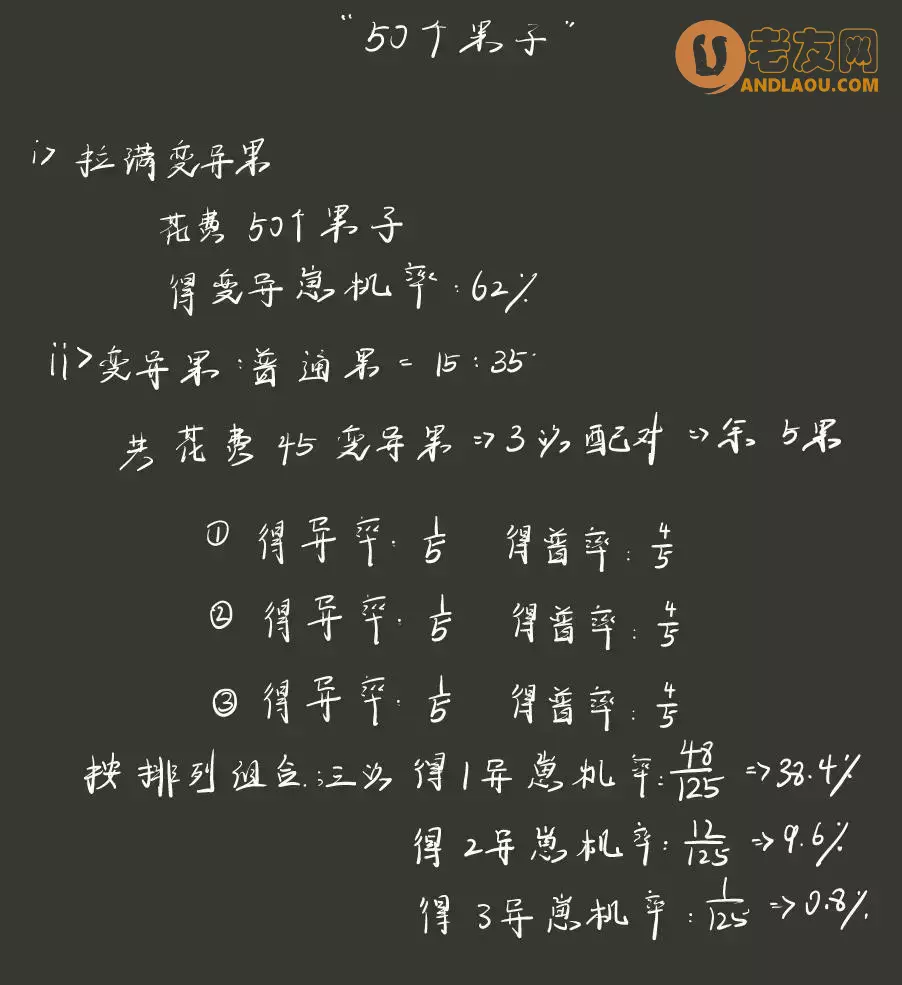 “50个果子”
老友网
ANDLAOU.COM
i> 拉满变异果
花费 50个果子
得变异崽机率:62%
ii>变异果:普通果=15:35
共花费 45 变异果 => 3次配对 => 余 5果
① 得异率: 1/5 得普率: 4/5
② 得异率: 1/5 得普率: 4/5
③ 得异率: 1/5 得普率: 4/5
按排列组合:三次 得1异崽机率: 48/125 => 38.4%
得2异崽机率: 12/125 => 9.6%
得3异崽机率: 1/125 => 0.8%